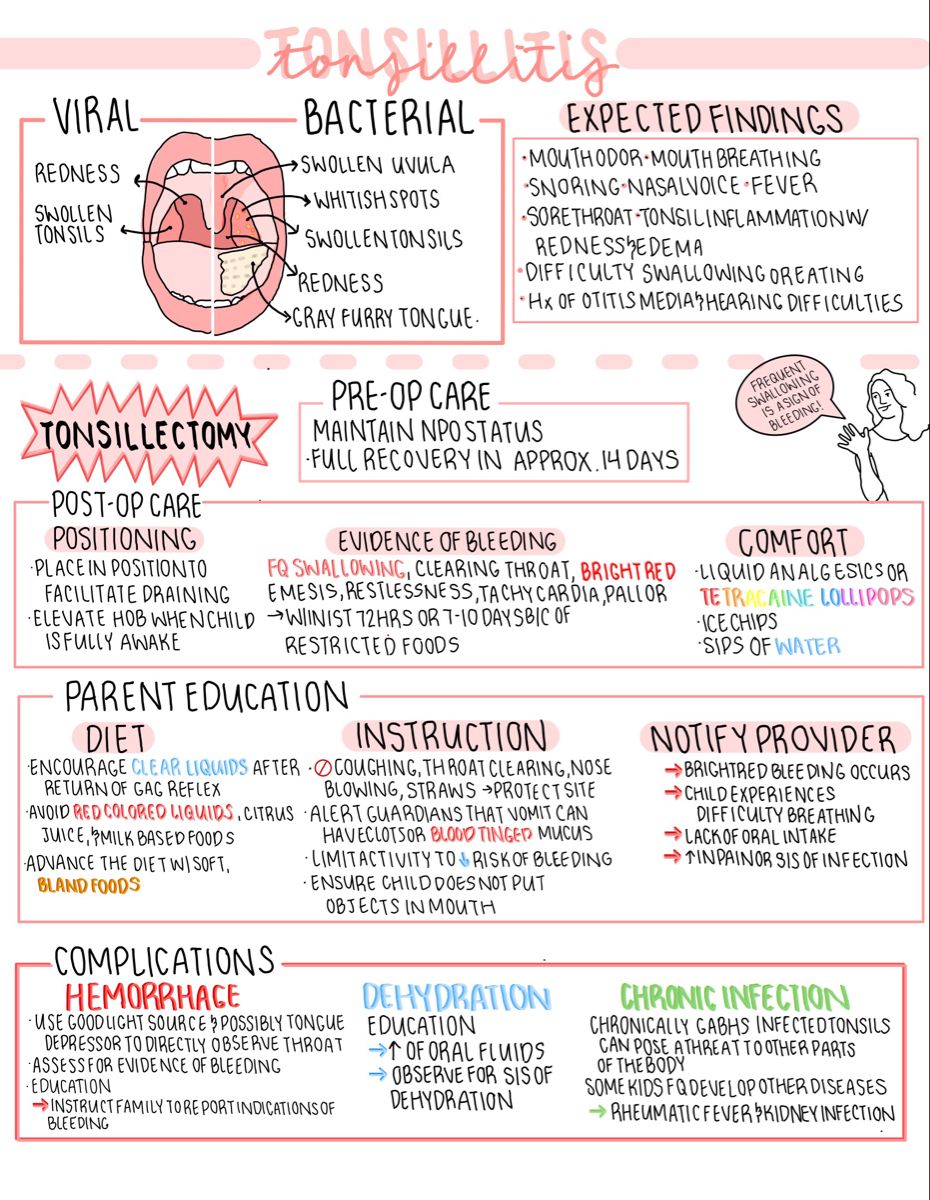 TONSILLITIS
tonsillitis
VIRAL
BACTERIAL
REDNESS
SWOLLEN
TONSILS
SWOLLEN UVULA
WHITISH SPOTS
SWOLLEN TONSILS
REDNESS
GRAY FURRY TONGUE.
EXPECTED FINDINGS
•MOUTH ODOR •MOUTH BREATHING
•SNORING •NASAL VOICE •FEVER
•SORE THROAT •TONSIL INFLAMMATION W/
REDNESS & EDEMA
•DIFFICULTY SWALLOWING OR EATING
•Hx OF OTITIS MEDIA & HEARING DIFFICULTIES
TONSILLECTOMY
PRE-OP CARE
MAINTAIN NPO STATUS
·FULL RECOVERY IN APPROX. 14 DAYS
FREQUENT
SWALLOWING
IS A SIGN OF
BLEEDING!
POST-OP CARE
POSITIONING
·PLACE IN POSITION TO
FACILITATE DRAINING
·ELEVATE HOB WHEN CHILD
IS FULLY AWAKE
EVIDENCE OF BLEEDING
FQ SWALLOWING, CLEARING THROAT, BRIGHT RED
EMESIS, RESTLESSNESS, TACHYCARDIA, PALLOR
→ W/IN 1ST 72HRS OR 7-10 DAYS B/C OF
RESTRICTED FOODS
COMFORT
·LIQUID ANALGESICS OR
TETRACAINE LOLLIPOPS
·ICE CHIPS
·SIPS OF WATER
PARENT EDUCATION
DIET
·ENCOURAGE CLEAR LIQUIDS AFTER
RETURN OF GAG REFLEX
·AVOID RED COLORED LIQUIDS, CITRUS
JUICE, & MILK BASED FOODS
·ADVANCE THE DIET W/ SOFT,
BLAND FOODS
INSTRUCTION
·🚫 COUGHING, THROAT CLEARING, NOSE
BLOWING, STRAWS → PROTECT SITE
·ALERT GUARDIANS THAT VOMIT CAN
HAVE CLOTS OR BLOOD TINGED MUCUS
·LIMIT ACTIVITY TO ↓ RISK OF BLEEDING
·ENSURE CHILD DOES NOT PUT
OBJECTS IN MOUTH
NOTIFY PROVIDER
→ BRIGHT RED BLEEDING OCCURS
→ CHILD EXPERIENCES
DIFFICULTY BREATHING
→ LACK OF ORAL INTAKE
→ ↑ IN PAIN OR S/S OF INFECTION
COMPLICATIONS
HEMORRHAGE
·USE GOOD LIGHT SOURCE & POSSIBLY TONGUE
DEPRESSOR TO DIRECTLY OBSERVE THROAT
·ASSESS FOR EVIDENCE OF BLEEDING
·EDUCATION
→ INSTRUCT FAMILY TO REPORT INDICATIONS OF
BLEEDING
DEHYDRATION
EDUCATION
→ ↑ OF ORAL FLUIDS
→ OBSERVE FOR S/S OF
DEHYDRATION
CHRONIC INFECTION
CHRONICALLY GABHS INFECTED TONSILS
CAN POSE A THREAT TO OTHER PARTS
OF THE BODY
SOME KIDS FQ DEVELOP OTHER DISEASES
→ RHEUMATIC FEVER & KIDNEY INFECTION